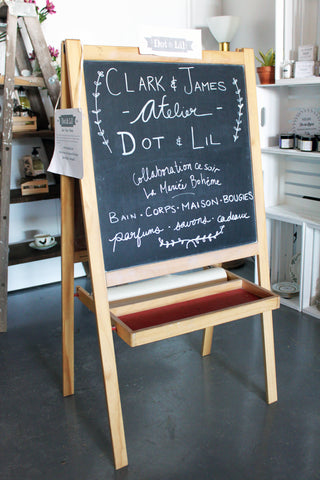 Dot & Lil
CLARK & JAMES
- Atelier -
DOT & LIL
Collaboration ce soir
La Menée Bohème
BAIN • CORPS • MAISON • BOUGIES
parfums • savons • cadeaux
Dot & Lil